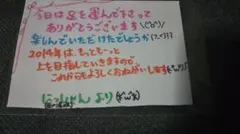 今日は足を運んで下さって
ありがとうございます(^o^)
楽しんでいただけたでしょうか
2014年は、もっともーっと
上を目指していきますので、
これからもよろしくおねがいします
にっしゃん より